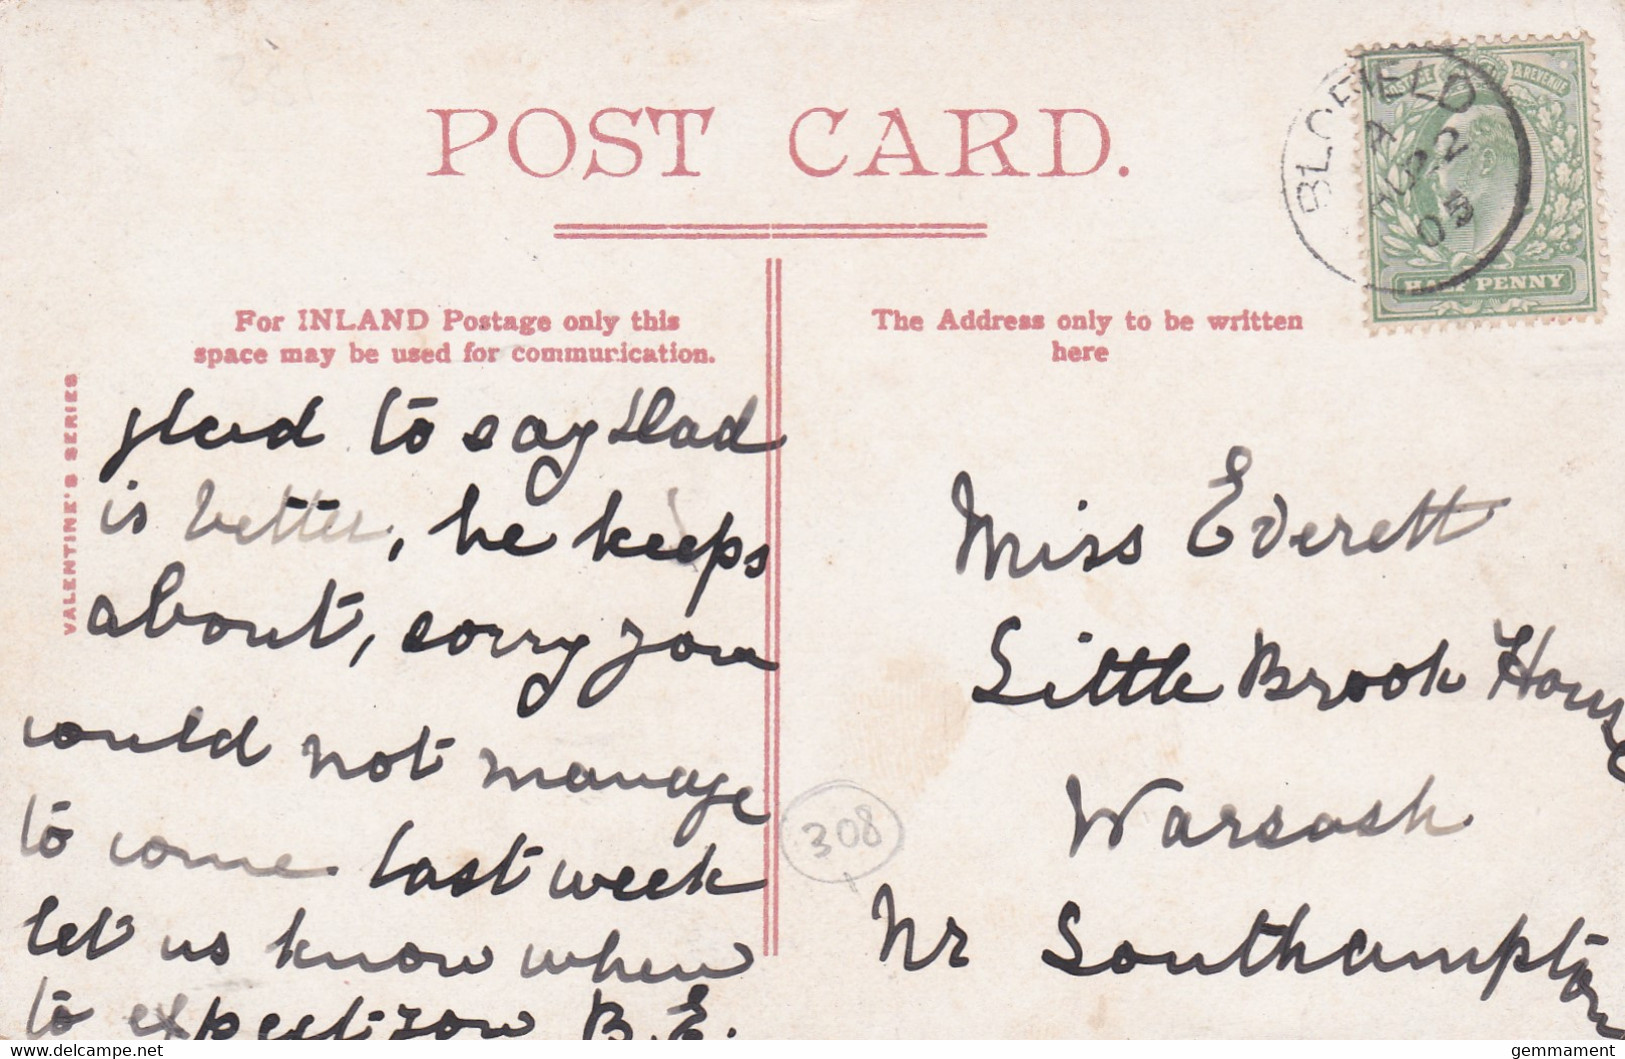 POST CARD.
For INLAND Postage only this
space may be used for communication.
The Address only to be written
here
VALENTINE'S SERIES
BLOFIELD
A
AU 22
05
POSTAGE & REVENUE
HALF PENNY
glad to say Dad
is better, he keeps
about, sorry you
could not manage
to come last week
let us know when
to expect you B.E.
Miss Everett
Little Brook House
Warsash
Nr Southampton
308
gemmament
www.delcampe.net